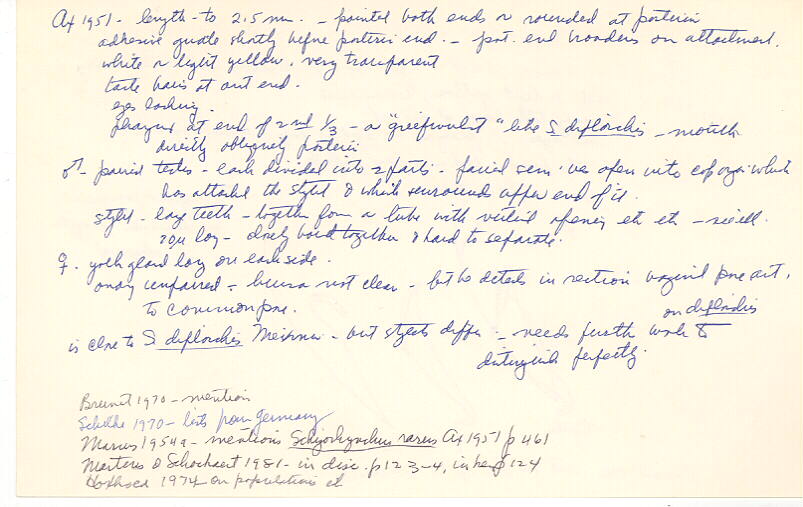 Ax 1951 - length - to 2.5 mm. - pointed both ends or rounded at posterior
adhesive girdle shortly before posterior end. - post. end broadens on attachment.
white or light yellow. very transparent
taste hairs at ant end.
eyes lacking.
pharynx at end of 2nd 1/3 - a "greifwulst" like S diplorchis - mouth
directly obliquely posterior
♂ - paired testes - each divided into 2 parts - sem. ves open into cop organ which
has attached the stylet & which surrounds upper end of it.
stylet - long teeth - together form a tube with opening etc etc -
70µ long - closely bound together & hard to separate.
♀. yolk gland long on each side.
ovary unpaired - bursa not clear - but he detects in section vaginal pore ant.
to common pore.
on diplorchis
is close to S diplorchis Meixner - but stylets differ - needs further work to
distinguish perfectly.
Brunet 1970 - mention
Schilke 1970 - lists from Germany
Marcus 1954a - mentions Schizorhynchus rarus Ax 1951 p 461
Martens & Schockaert 1981 - in disc. p 123-4, in key p 124
1974 - on populations etc